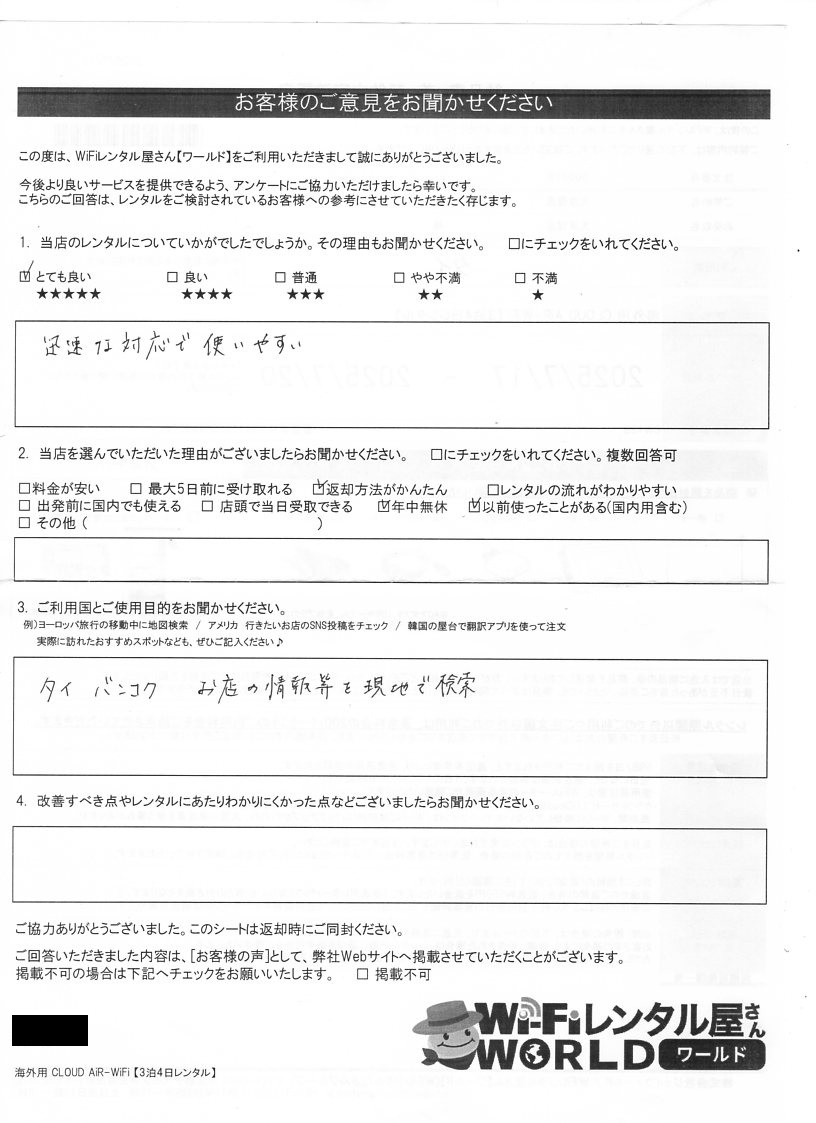 お客様のご意見をお聞かせください
この度は、WiFiレンタル屋さん【ワールド】をご利用いただきまして誠にありがとうございました。
今後より良いサービスを提供できるよう、アンケートにご協力いただけましたら幸いです。
こちらのご回答は、レンタルをご検討されているお客様への参考にさせていただきたく存じます。
1. 当店のレンタルについていかがでしたでしょうか。その理由もお聞かせください。 □にチェックをいれてください。
☑ とても良い □ 良い □ 普通 □ やや不満 □ 不満
★★★★★ ★★★★ ★★★ ★★ ★
迅速な対応で使いやすい
2. 当店を選んでいただいた理由がございましたらお聞かせください。 □にチェックをいれてください。複数回答可
□料金が安い □ 最大5日前に受け取れる ☑返却方法がかんたん □レンタルの流れがわかりやすい
□ 出発前に国内でも使える □ 店頭で当日受取できる ☑年中無休 ☑以前使ったことがある(国内用含む)
□ その他 ( )
3. ご利用国とご使用目的をお聞かせください。
例)ヨーロッパ旅行の移動中に地図検索 / アメリカ 行きたいお店のSNS投稿をチェック / 韓国の屋台で翻訳アプリを使って注文
実際に訪れたおすすめスポットなども、ぜひご記入ください♪
タイ バンコク お店の情報等を現地で検索
4. 改善すべき点やレンタルにあたりわかりにくかった点などございましたらお聞かせください。
ご協力ありがとうございました。このシートは返却時にご同封ください。
ご回答いただきました内容は、[お客様の声]として、弊社Webサイトへ掲載させていただくことがございます。
掲載不可の場合は下記へチェックをお願いいたします。 □ 掲載不可
Wi-Fiレンタル屋さん
WORLD ワールド
海外用 CLOUD AiR-WiFi 【3泊4日レンタル】